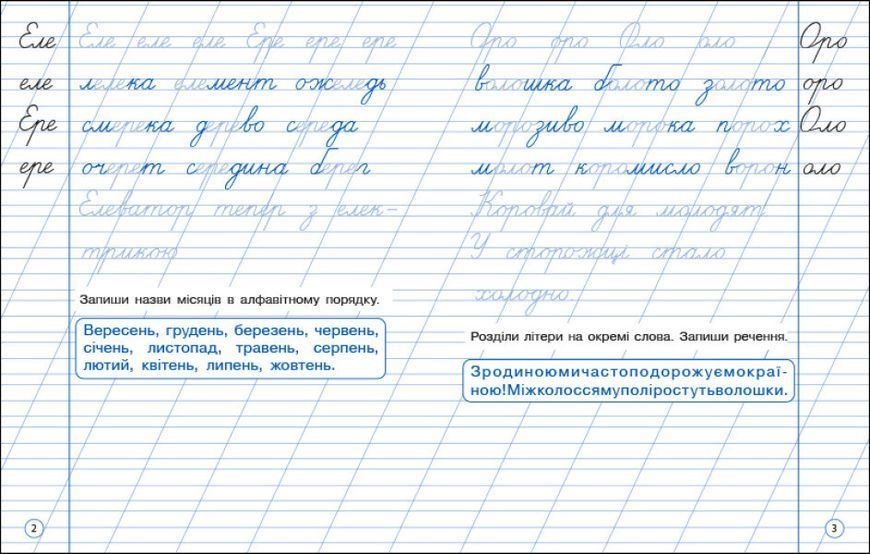 Еле Еле еле еле Ере ере ере
еле лелека елемент ожеледь
Ере смерека дерево середа
ере очерет середина берег
Елеватор тепер з елек-
трикою
Запиши назви місяців в алфавітному порядку.
Вересень, грудень, березень, червень,
січень, листопад, травень, серпень,
лютий, квітень, липень, жовтень.
2
Оро оро Оло оло Оро
волошка болото золото оро
морозиво морока порох Оло
молот коромисло ворон оло
Коровай для молодят!
У сторожці стало
холодно.
Розділи літери на окремі слова. Запиши речення.
Зродиноюмичастоподорожуємокраї-
ною!Міжколоссямуполіростутьволошки.
3